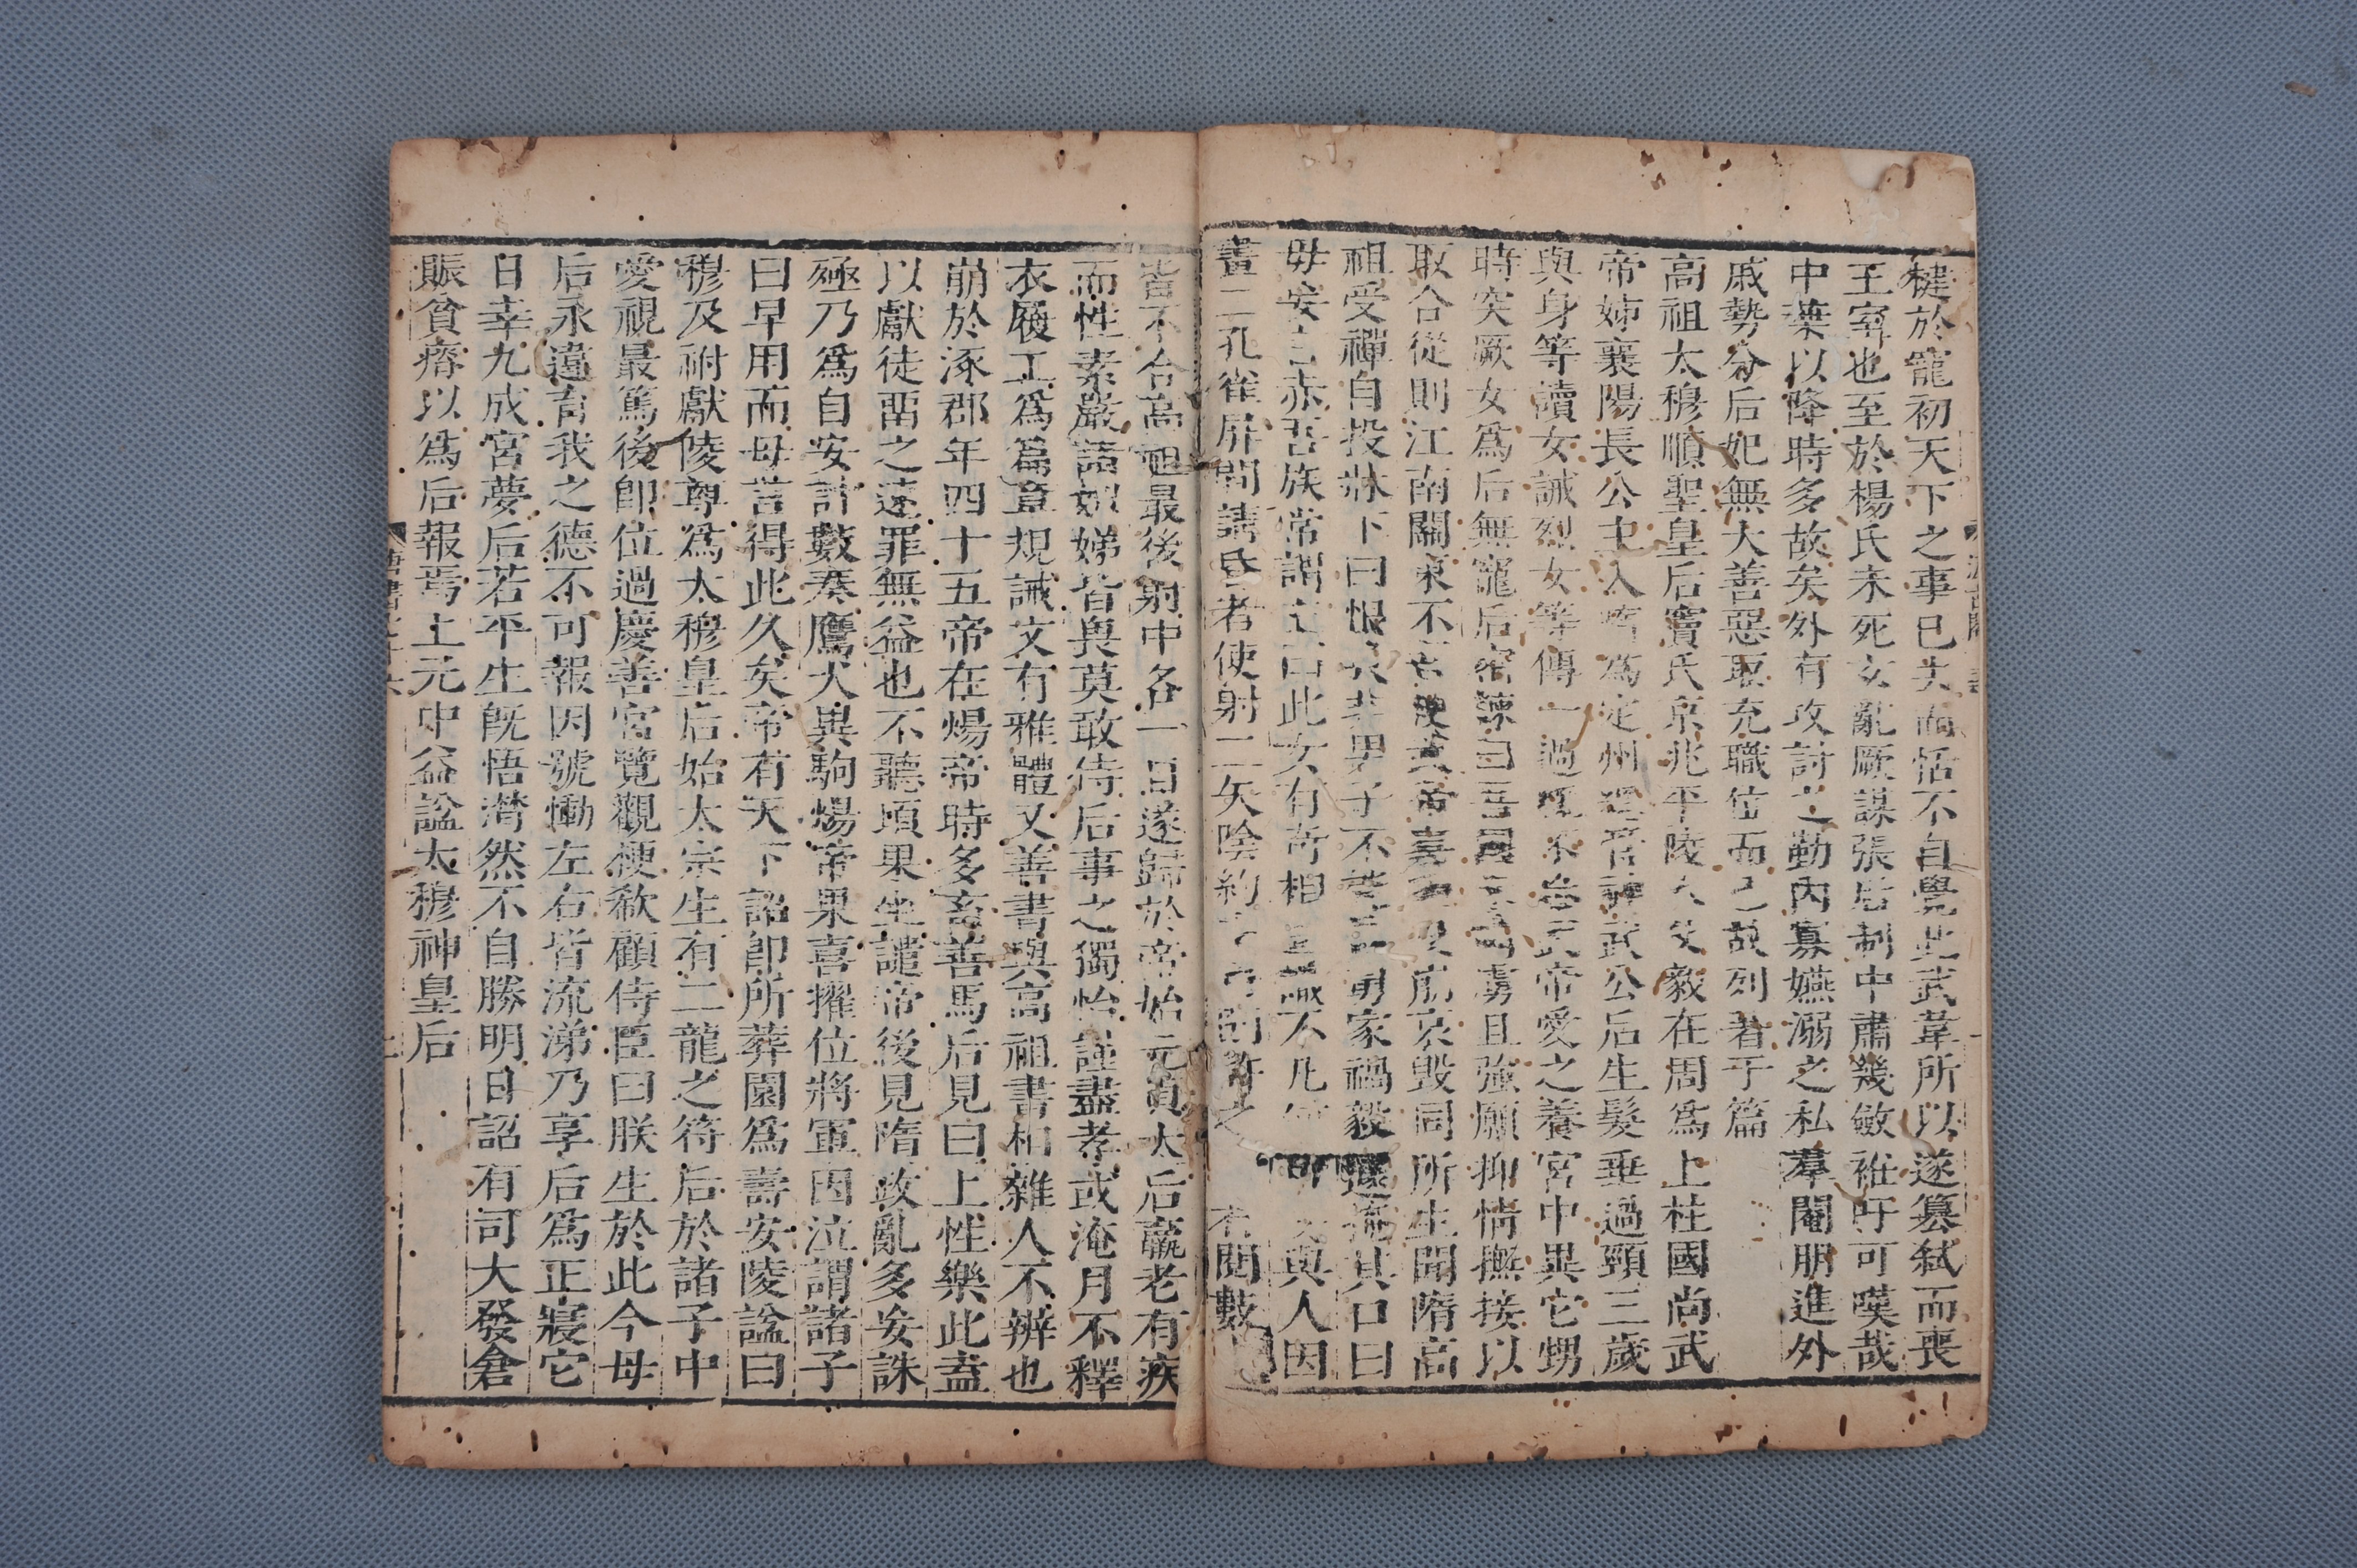 揵於寵初天下之事已去而恬不自覺此武韋所以遂篡弒而喪
王室也至於楊氏未死玄亂厥謀張后制中肅幾斂袵吁可嘆哉
中葉以降時多故矣外有攻討之勤內寡嬿溺之私羣閹朋進外
戚勢分后妃無大善惡取充職位而已故列著于篇
高祖太穆順聖皇后竇氏京兆平陵人父毅在周爲上柱國尚武
帝姊襄陽長公主入隋爲定州總管神武公后生髮垂過頸三歲
與身等讀女誡烈女等傳一過輒不忘武帝愛之養宮中異它甥
時突厥女爲后無寵后密諫曰吾國未靖虜且強願抑情撫接以
取合從則江南關東不吾梗武帝嘉
及崩哀毀同所生聞隋高
祖受禪自投牀下曰恨我非男子不
舅家禍毅遽掩其口曰
毋妄言赤吾族常謂主曰此女有奇相且識不凡何
與人因
畫二孔雀屏間請昏者使射二矢陰約
則許之
閱數
皆不合高祖最後射中各一目遂歸於帝始元貞太后羸老有疾
而性素嚴諸姒娣皆畏莫敢侍后事之獨怡謹盡孝或淹月不釋
衣履工爲篇章規誡文有雅體又善書與高祖書相雜人不辨也
崩於涿郡年四十五帝在煬帝時多畜善馬后見曰上性樂此盍
以獻徒留之速罪無益也不聽頃果坐譴帝後見隋政亂多妄誅
殛乃爲自安計數奏鷹犬異駒煬帝果喜擢位將軍因泣謂諸子
曰早用而母言得此久矣帝有天下詔即所葬園爲壽安陵謚曰
穆及祔獻陵尊爲太穆皇后始太宗生有二龍之符后於諸子中
愛視最篤後即位過慶善宮覽觀梗欷顧侍臣曰朕生於此今母
后永違育我之德不可報因號慟左右皆流涕乃享后爲正寢它
日幸九成宮夢后若平生既悟潸然不自勝明日詔有司大發倉
賑貧瘠以爲后報焉上元中益謚太穆神皇后